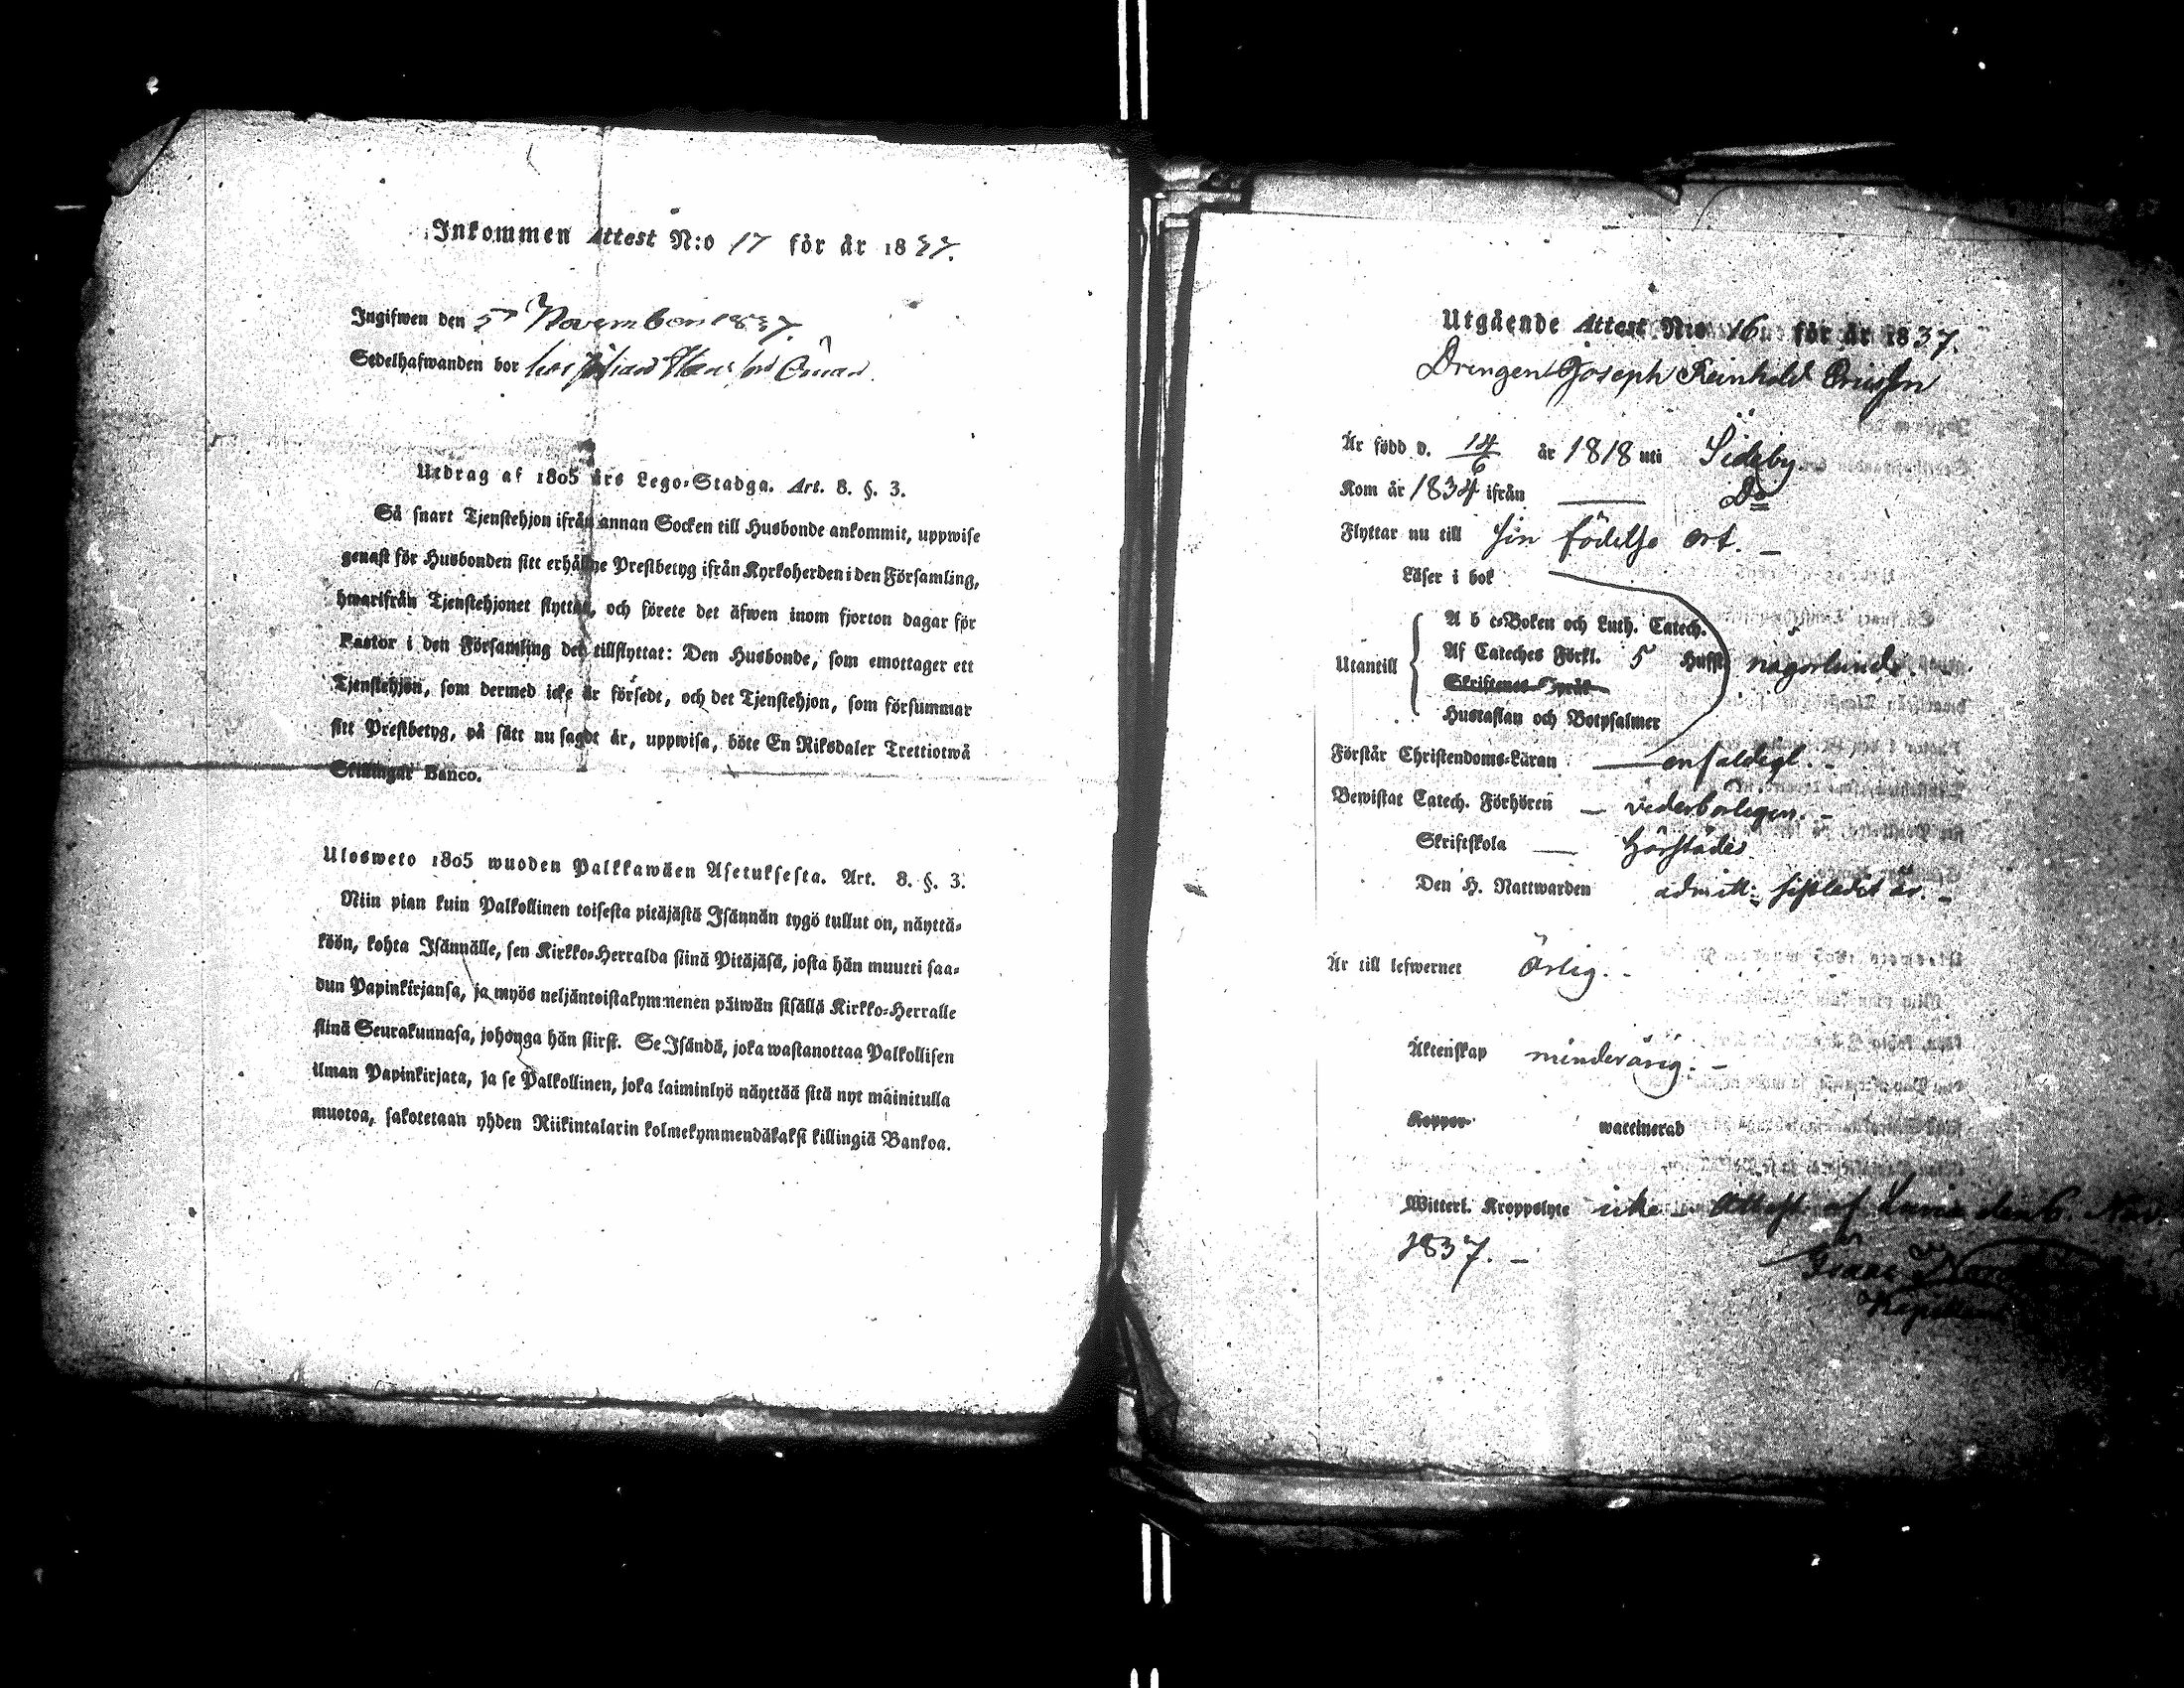 Inkommen Attest N:o 17 för år 1837.
Ingifwen den 5 November 1837.
Sedelhafwanden bor hos
Utdrag af 1805 års Lego-Stadga. Art. 8. §. 3.
Så snart Tjenstehjon ifrån annan Socken till Husbonde ankommit, uppwise
genast för Husbonden sitt erhållne Prestbetyg ifrån Kyrkoherden i den Församling,
hwarifrån Tjenstehjonet flyttat, och förete det äfwen inom fjorton dagar för
Pastor i den Församling det tillflyttat: Den Husbonde, som emottager ett
Tjenstehjon, som dermed icke är försedt, och det Tjenstehjon, som försummar
sitt Prestbetyg, på sätt nu sagdt är, uppwisa, böte En Riksdaler Trettiotwå
Skillingar Banco.
Ulosweto 1805 wuoden Palkkawäen Asetuksesta. Art. 8. §. 3.
Niin pian kuin Palkollinen toisesta pitäjästä Isännän tygö tullut on, näyttä-
köön, kohta Isännälle, sen Kirkko-Herralda siinä Pitäjäsä, josta hän muutti saa-
dun Papinkirjansa, ja myös neljäntoistakymmenen päiwän sisällä Kirkko-Herralle
siinä Seurakunnasa, johonga hän siirsi. Se Isändä, joka wastanottaa Palkollisen
ilman Papinkirjata, ja se Palkollinen, joka laiminlyö näyttää sitä nyt mainitulla
muotoa, sakotetaan yhden Riikintalarin kolmekymmendäkaksi killingiä Bankoa.
Utgående Attest N:o 16 för år 1837.
Drengen Joseph Reinhold Ericsson
Är född d. 14/6 år 1818 uti Sideby
Kom år 1834 ifrån — Do
Flyttar nu till sin födelse ort. —
Läser i bok
A b c-Boken och Luth. Catech.
Utantill Af Cateches Förkl. 5 Hufst. någorlunda.
Skriftenes Språk
Hustaflan och Botpsalmer
Förstår Christendoms-Läran — enfaldigt.
Bewistat Catech. Förhören — vederborligen. —
Skriftskola — härstädes
Den H. Nattwarden admitt:
Är till lefwernet Ärlig. -
Äktenskap minderårig. —
Koppor waccinerad
Witterl. Kroppslyte icke — Attest. af den 6. Nov
1837. —